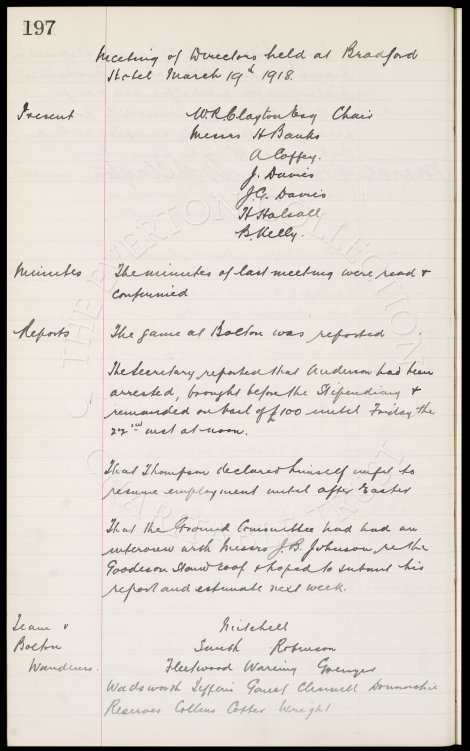 197
Meeting of Directors held at Bradford
Hotel March 19th 1918.
Present W.R. Clayton Esq Chair
Messrs H Banks
A Coffey.
J. Davies
J.C. Davies
H Halsall
B. Kelly.
Minutes The minutes of last meeting were read &
confirmed
Reports The game at Bolton was reported
The Secretary reported that Anderson had been
arrested, brought before the Stipendiary &
remanded on bail of £100 until Friday the
22nd inst at noon.
That Thompson declared himself unfit to
resume employment until after Easter
That the Ground Committee had had an
interview with Messrs J.B. Johnson re the
Goodison Stand roof & hoped to submit his
report and estimate next week.
Team v Mitchell
Bolton Smith Robinson
Wanderers. Fleetwood Wareing Grenyer
Wadsworth Jefferis Gault Clennell Donnachie
Reserves Collins Cotter Wright
THE EVERTON COLLECTION
CHARITABLE TRUST